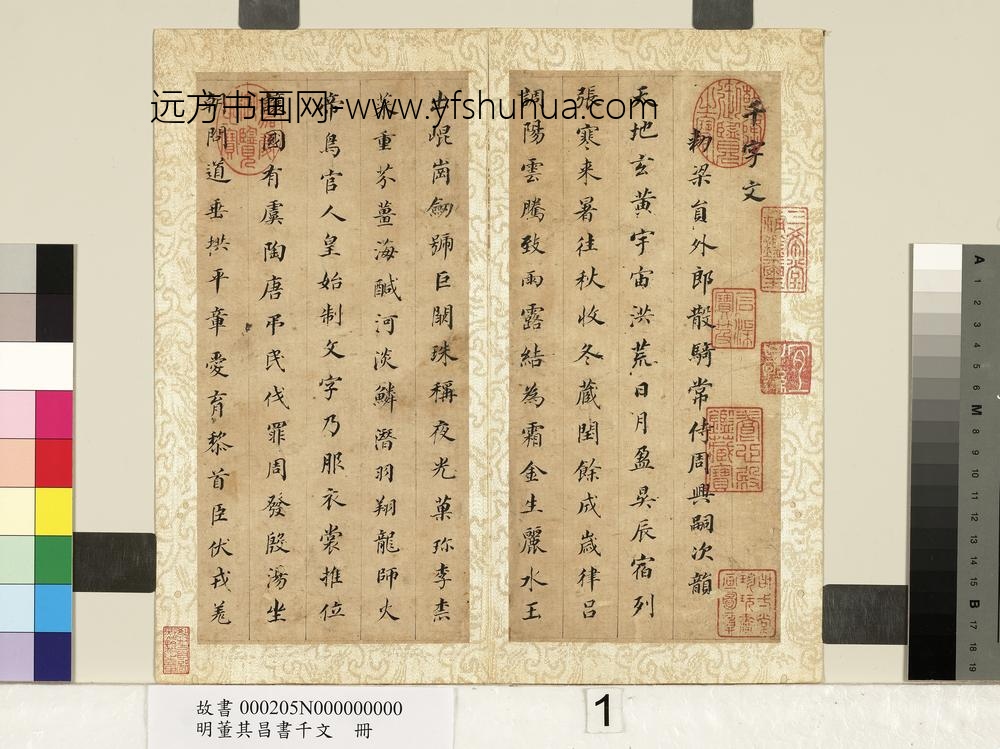 远方书画网-www.yfshuhua.com
千字文
勑梁貟外郎散騎常侍周興嗣次韻
天地玄黃宇宙洪荒日月盈昃辰宿列
張寒来暑往秋收冬蔵閏餘成歲律呂
調陽雲騰致雨露結為霜金生麗水玉
出崐崗劒號巨闕珠稱夜光菓珎李柰
菜重芥薑海鹹河淡鱗潛羽翔龍師火
帝鳥官人皇始制文字乃服衣裳推位
讓國有虞陶唐弔民伐罪周發殷湯坐
朝問道垂拱平章愛育黎首臣伏戎羌
三希堂精鑑璽
石渠寶笈
宜子孫
養心殿鑑藏寶
故書 000205N000000000
明董其昌書千文 冊
1
A 1 2 3 4 5 6 M 8 9 10 11 12 13 14 15 B 17 18 19